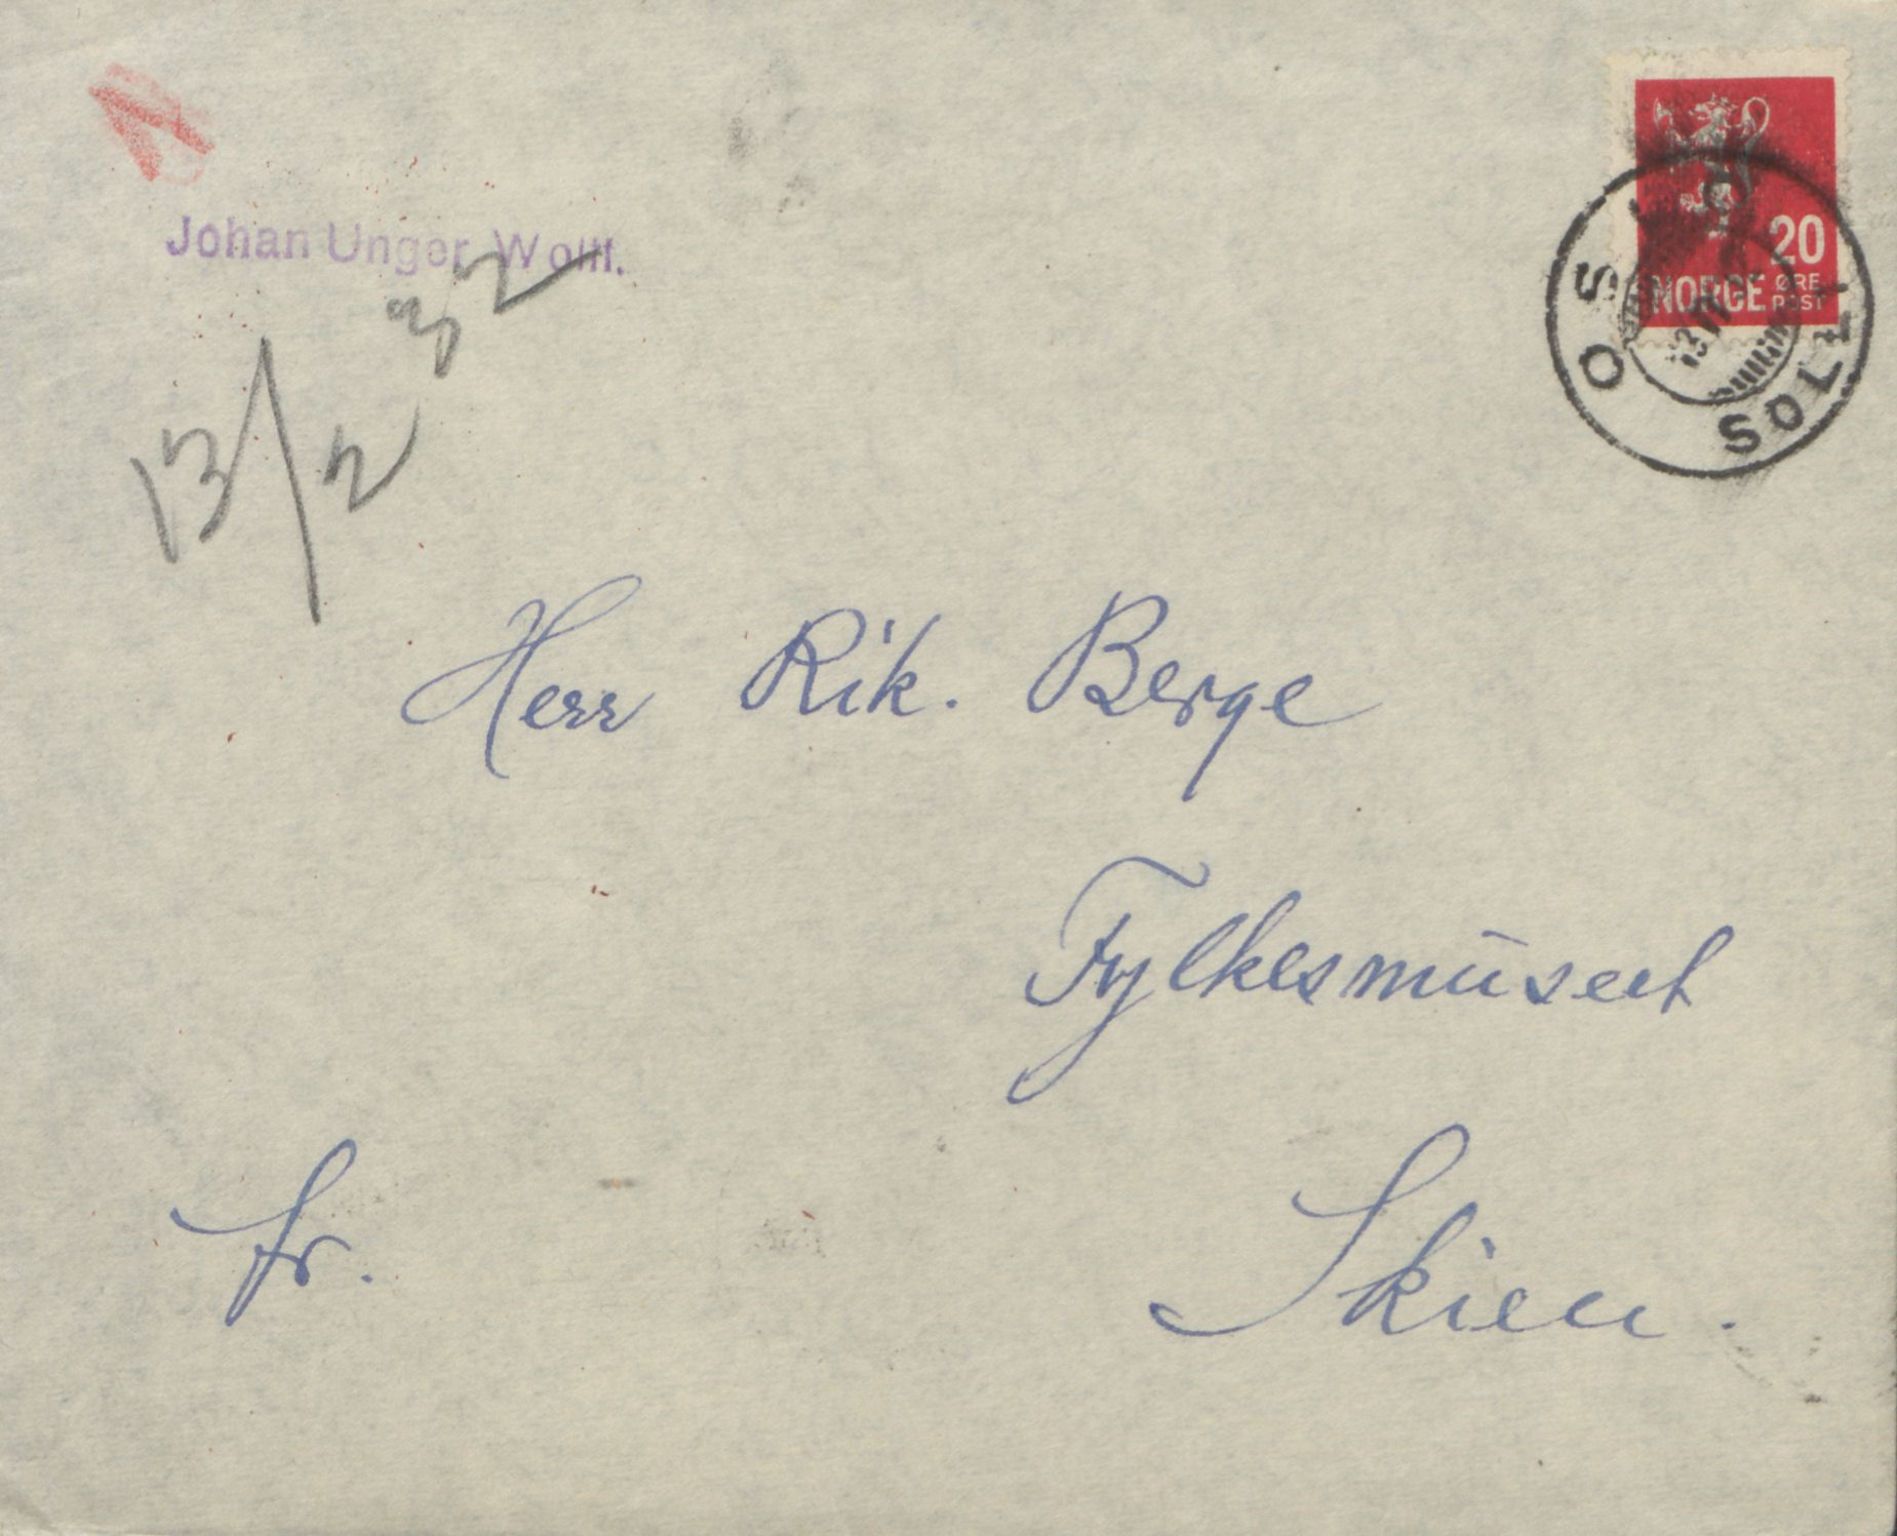 Johan Unger Wolff.
13/2 32
20
NORGE ØRE
POST
OSLO
SOLLI
Herr Rik. Berge
Fylkesmuseet
fr.
Skien.